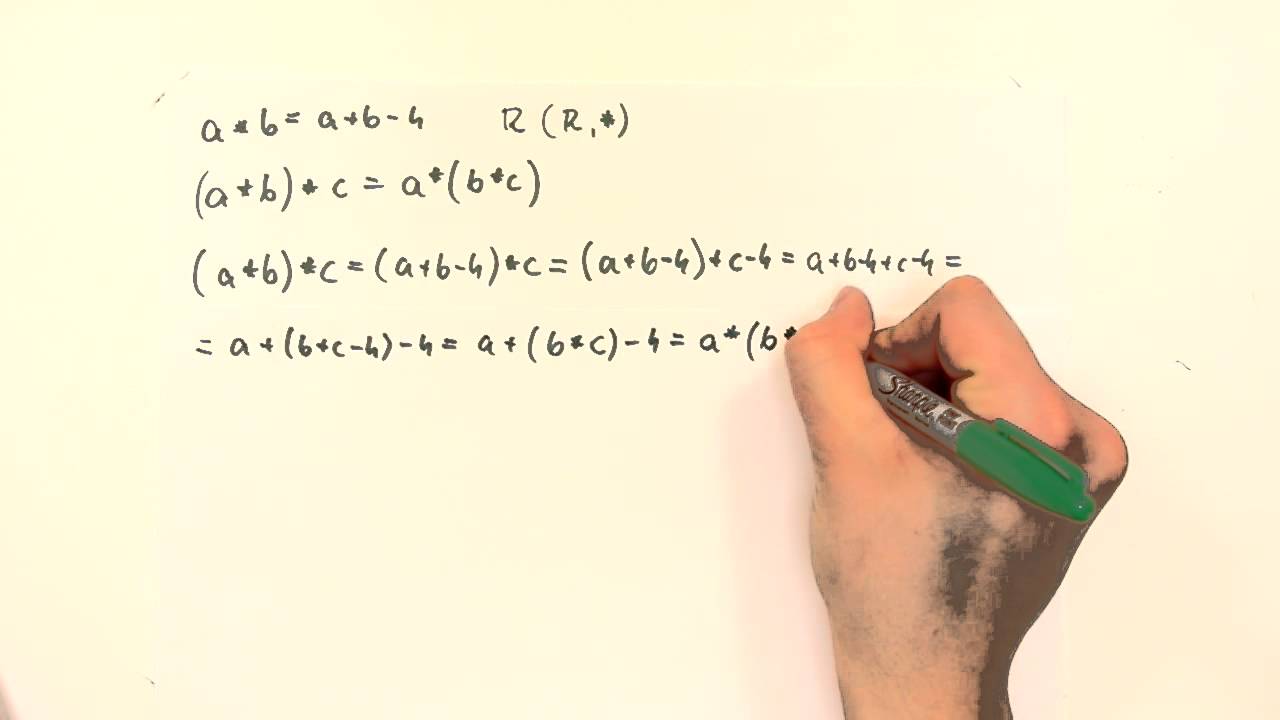 a * b = a+b-4    ℝ (ℝ,*)
(a * b) * c = a*(b*c)
(a*b)*c = (a+b-4)*c = (a+b-4)+c-4 = a+b-4+c-4 =
= a+(b+c-4)-4 = a+(b*c)-4 = a*(b*
Sharpie